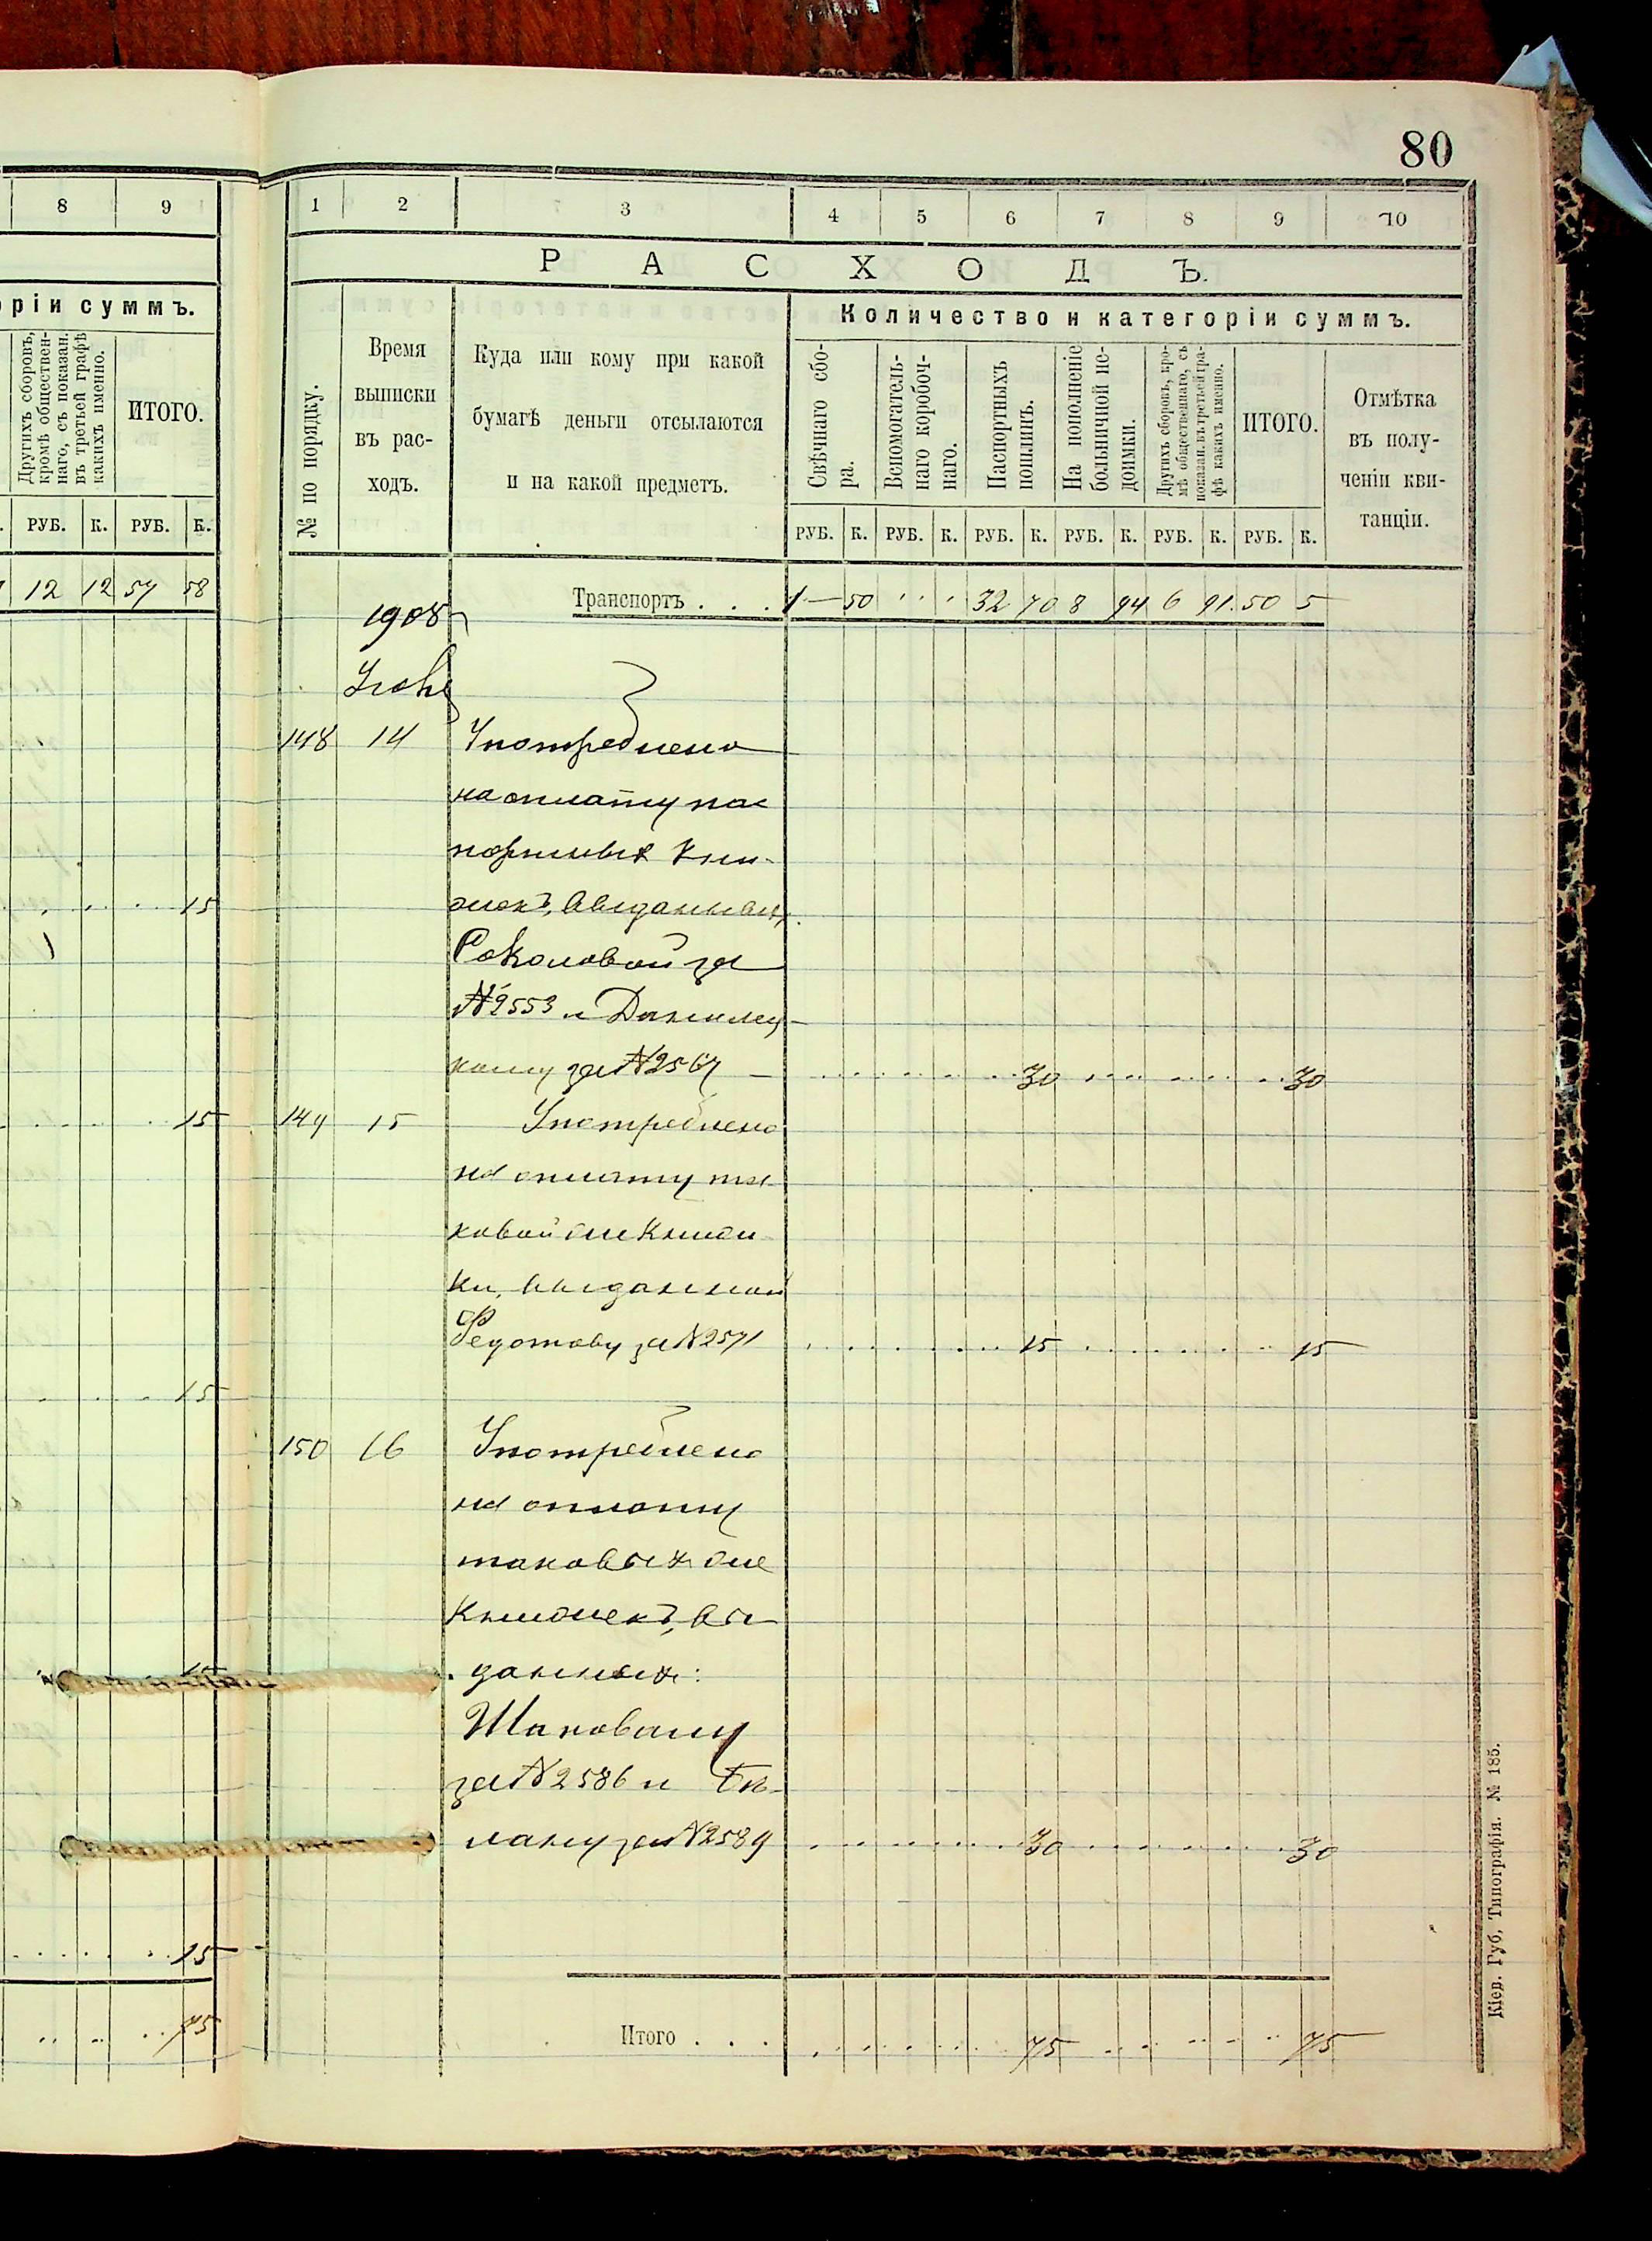 80
8 9
ріи суммъ.
Другихъ сборовъ,
кромѣ обществен-
наго, съ показан.
въ третьей графѣ
какихъ именно.
ИТОГО.
РУБ. К. РУБ. К.
12 12 57 58
15
15
15
15
15
75
1 2 3 4 5 6 7 8 9 10
РАСХОДЪ.
№ по порядку.
Время
выписки
въ рас-
ходъ.
Куда или кому при какой
бумагѣ деньги отсылаются
и на какой предметъ.
Количество и категоріи суммъ.
Свѣчнаго сбо-
ра.
Вспомогатель-
наго коробоч-
наго.
Паспортныхъ
пошлинъ.
На пополненіе
больничной не-
доимки.
Другихъ сборовъ, кро-
мѣ общественнаго, съ
показан. въ третьей гра-
фѣ какихъ именно.
ИТОГО.
Отмѣтка
въ полу-
ченіи кви-
танціи.
РУБ. К. РУБ. К. РУБ. К. РУБ. К. РУБ. К. РУБ. К.
Транспортъ . . . 1 — 50 32 70 8 94 6 91 50 5
1908
148 14 Употреблено
на оплату пас
портныхъ кни-
жекъ, выданныхъ
Соколовой за
№ 2553 и
за № 2567 — 30 30
149 15 Употреблено
на оплату та-
ковой же книж-
ки, выданной
Федотову за № 2571 15 15
150 16 Употреблено
на оплату
таковыхъ же
книжекъ, вы-
данныхъ:
за № 2586 и
за № 2589 30 30
Итого . . . 75 75
Кіев. Губ. Типографія. № 185.